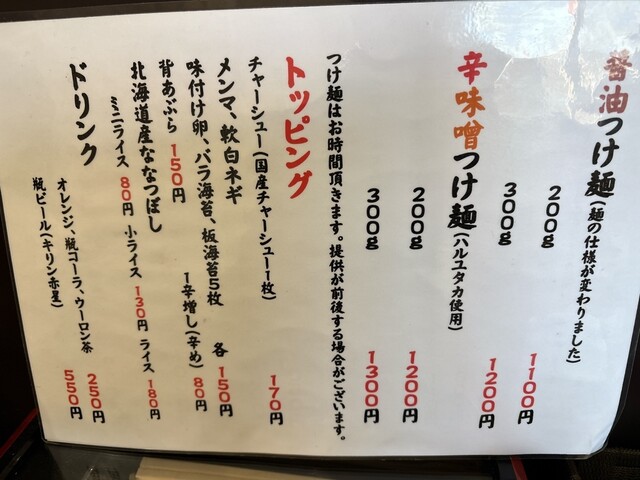 醤油つけ麺(麺の仕様が変わりました)
200g 1100円
300g 1200円
辛味噌つけ麺(ハルユタカ使用)
200g 1200円
300g 1300円
つけ麺はお時間頂きます。提供が前後する場合がございます。
トッピング
チャーシュー(国産チャーシュー1枚) 170円
メンマ、軟白ネギ
味付け卵、バラ海苔、板海苔5枚 各150円
背あぶら 150円 1辛増し(辛め) 80円
北海道産ななつぼし
ミニライス 80円 小ライス 130円 ライス 180円
ドリンク
オレンジ、瓶コーラ、ウーロン茶 250円
瓶ビール(キリン赤星) 550円